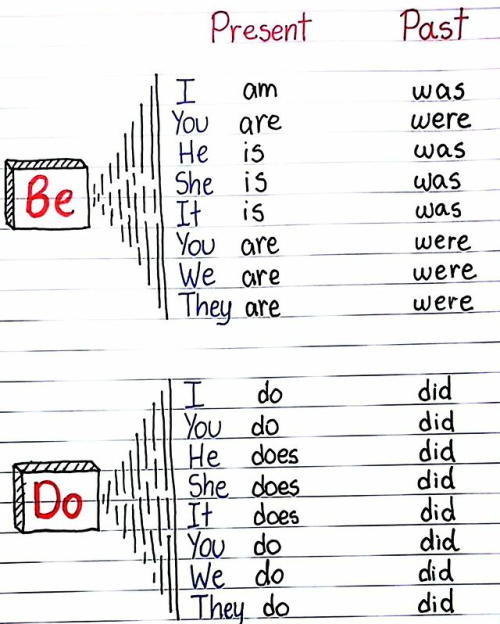 Present Past
I am was
You are were
He is was
Be
She is was
It is was
You are were
We are were
They are were
I do did
You do did
He does did
She does did
Do
It does did
You do did
We do did
They do did